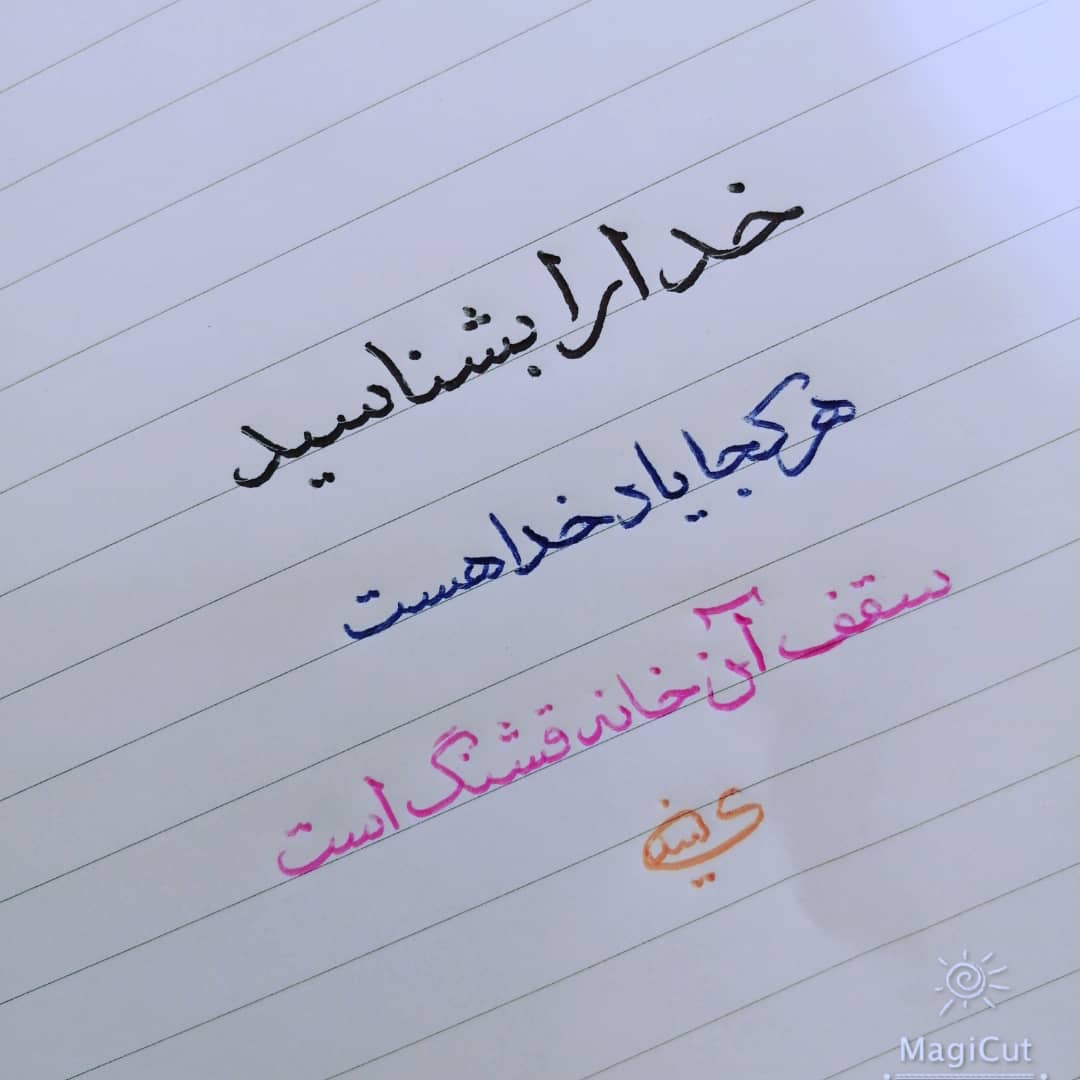 خدا را بشناسید
هر کجا یاد خدا هست
سقف آن خانه قشنگ است
MagiCut